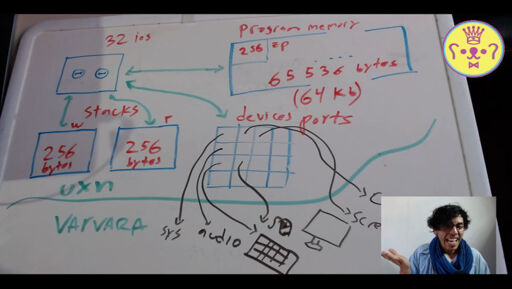 program memory
32 ios
256 zp
65 536 bytes
(64 kb)
stacks
devices ports
w
r
256
bytes
256
bytes
uxn
VARVARA
sys
audio